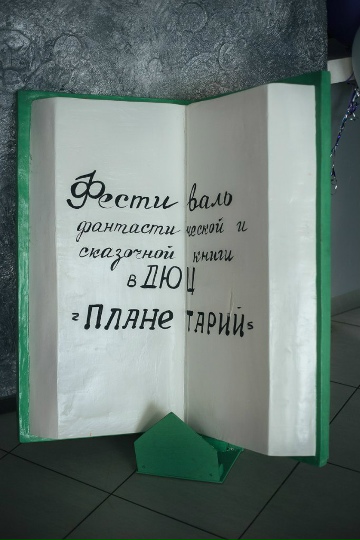 Фестиваль
фантастической и
сказочной книги
в ДЮЦ
"ПЛАНЕТАРИЙ"